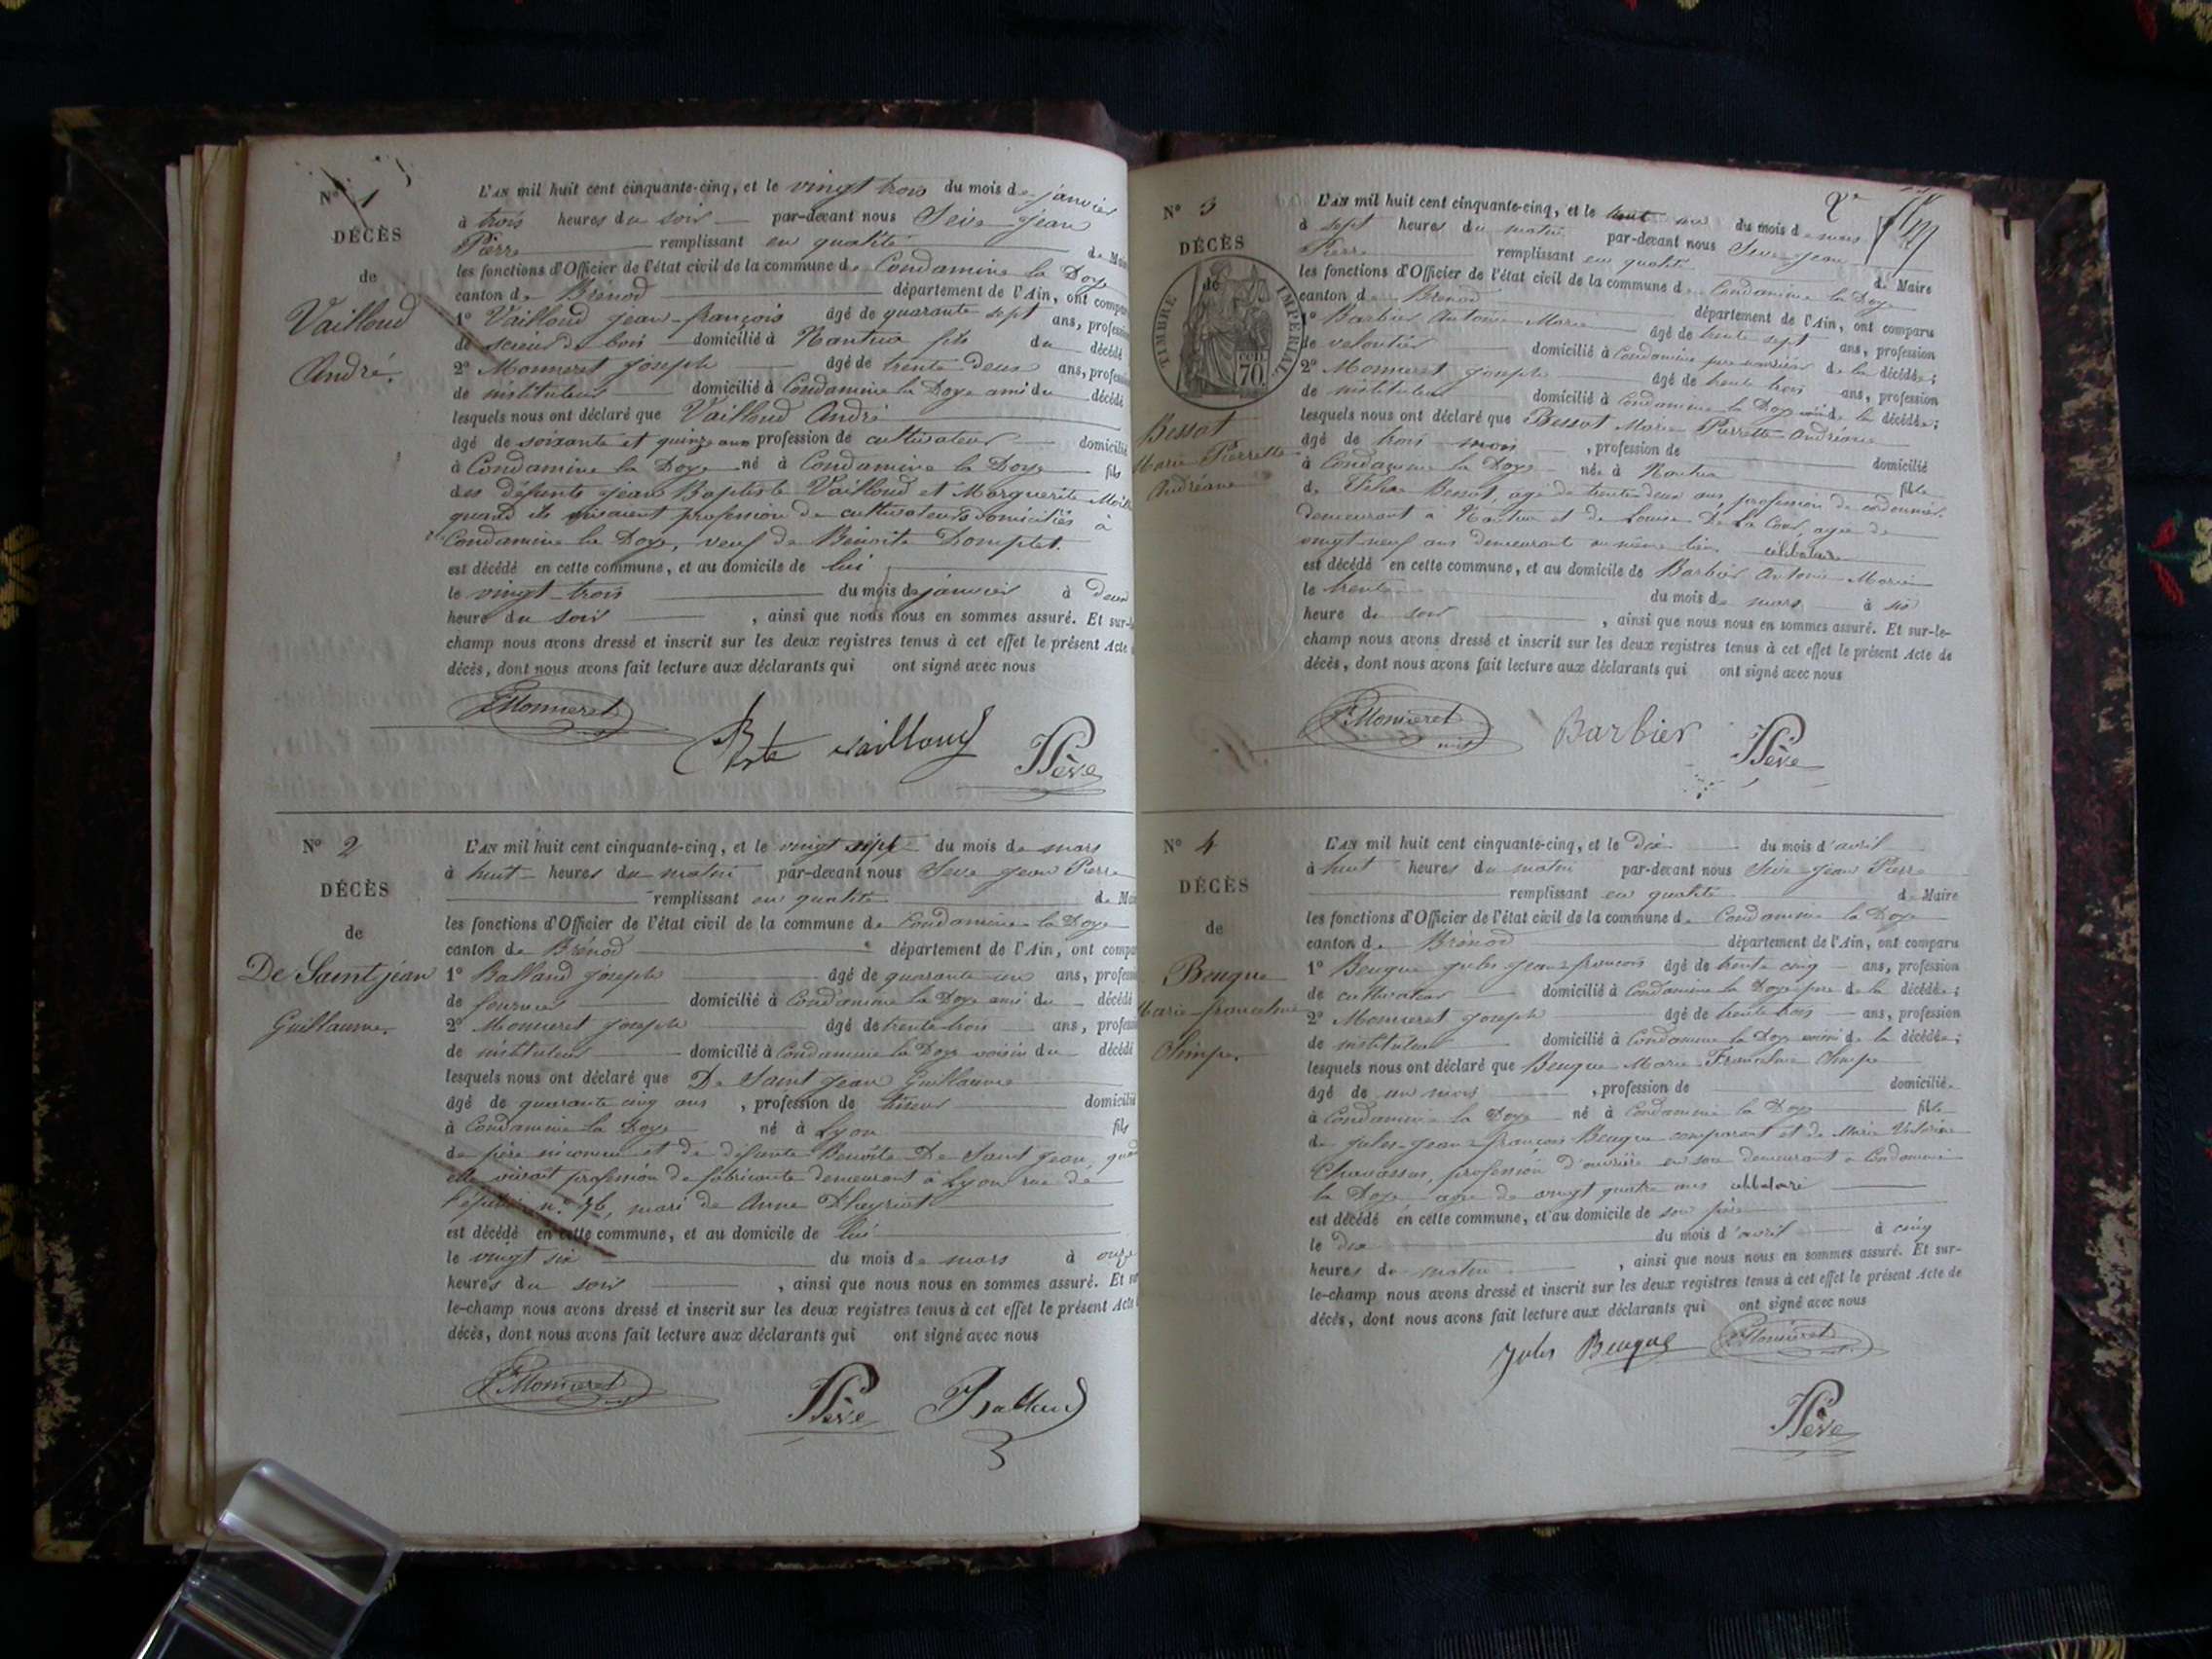 N° 1
DÉCÈS
de
Vailloud
André.
L'AN mil huit cent cinquante-cinq, et le vingt trois du mois de janvier
à trois heures du soir par-devant nous Sève Jean
Pierre remplissant en qualité de Mai
les fonctions d'Officier de l'état civil de la commune de Condamine la Doye
canton de Brénod département de l'Ain, ont compa
1° Vailloud Jean-françois âgé de quarante sept ans, profession
de scieur de bois domicilié à Nantua fils du décédé
2° Monneret Joseph âgé de trente deux ans, profession
de instituteur domicilié à Condamine la Doye ami du décédé
lesquels nous ont déclaré que Vailloud André
âgé de soixante et quinze ans profession de cultivateur domicilié
à Condamine la Doye né à Condamine la Doye fils
des défunts Jean Baptiste Vailloud et Marguerite
quand ils vivaient profession de cultivateurs domiciliés à
Condamine la Doye, veuf de Benoite Domplet.
est décédé en cette commune, et au domicile de lui
le vingt-trois du mois de janvier à deux
heure du soir , ainsi que nous nous en sommes assuré. Et sur-le
champ nous avons dressé et inscrit sur les deux registres tenus à cet effet le présent Acte
décès, dont nous avons fait lecture aux déclarants qui ont signé avec nous
Monneret
Bte vailloud
Sève
N° 2
DÉCÈS
de
De Saint jean
Guillaume.
L'AN mil huit cent cinquante-cinq, et le vingt sept du mois de mars
à huit heures du matin par-devant nous Sève Jean Pierre
remplissant en qualité de Mai
les fonctions d'Officier de l'état civil de la commune de Condamine la Doye
canton de Brénod département de l'Ain, ont compa
1° Balland Joseph âgé de quarante un ans, profession
de domicilié à Condamine la Doye ami du décédé
2° Monneret Joseph âgé de trente trois ans, profession
de instituteur domicilié à Condamine la Doye voisin du décédé
lesquels nous ont déclaré que De Saint Jean Guillaume
âgé de quarante cinq ans , profession de tisseur domicilié
à Condamine la Doye né à Lyon fils
de père inconnu et de défunte Benoite De Saint Jean, quand
elle vivait profession de fabricante demeurant à Lyon rue de
n° 76, mari de Anne
est décédé en cette commune, et au domicile de lui
le vingt six du mois de mars à onze
heures du soir , ainsi que nous nous en sommes assuré. Et sur
le-champ nous avons dressé et inscrit sur les deux registres tenus à cet effet le présent Acte
décès, dont nous avons fait lecture aux déclarants qui ont signé avec nous
Monneret
Sève
Balland
N° 3
DÉCÈS
de
TIMBRE IMPÉRIAL
cen
70
Bessot
Marie Pierrette
Andréane
L'AN mil huit cent cinquante-cinq, et le trente un du mois de mars
à sept heures du matin par-devant nous Sève Jean
Pierre remplissant en qualité de Maire
les fonctions d'Officier de l'état civil de la commune de Condamine la Doye
canton de Brénod département de l'Ain, ont comparu
1° Barbier Antoine Marie âgé de trente sept ans, profession
de veloutier domicilié à Condamine père nourricier de la décédée;
2° Monneret Joseph âgé de trente trois ans, profession
de instituteur domicilié à Condamine la Doye voisin de la décédée;
lesquels nous ont déclaré que Bessot Marie Pierrette Andréane
âgé de trois mois , profession de domicilié
à Condamine la Doye née à Nantua fille
de Bessot, âgé de trente deux ans, profession de cordonnier
demeurant à Nantua et de Louise De La Cour, âgée de
vingt neuf ans demeurant au même lieu célibataire
est décédé en cette commune, et au domicile de Barbier Antoine Marie
le trente du mois de mars à six
heure du soir , ainsi que nous nous en sommes assuré. Et sur-le-
champ nous avons dressé et inscrit sur les deux registres tenus à cet effet le présent Acte de
décès, dont nous avons fait lecture aux déclarants qui ont signé avec nous
Monneret
Barbier
Sève
N° 4
DÉCÈS
de
Beugue
Marie-franceline
Olimpe.
L'AN mil huit cent cinquante-cinq, et le dix du mois d'avril
à huit heures du matin par-devant nous Sève Jean Pierre
remplissant en qualité de Maire
les fonctions d'Officier de l'état civil de la commune de Condamine la Doye
canton de Brénod département de l'Ain, ont comparu
1° Beugue Jules Jean-françois âgé de trente cinq ans, profession
de cultivateur domicilié à Condamine la Doye père de la décédée;
2° Monneret Joseph âgé de trente trois ans, profession
de instituteur domicilié à Condamine la Doye voisin de la décédée;
lesquels nous ont déclaré que Beugue Marie Franceline Olimpe
âgé de un mois , profession de domiciliée
à Condamine la Doye né à Condamine la Doye fille
de Jules-Jean-françois Beugue comparant et de Marie
Chavassus, profession d'ouvrière en soie demeurant à Condamine
la Doye âgée de vingt quatre ans célibataire
est décédé en cette commune, et au domicile de son père
le dix du mois d'avril à cinq
heures du matin , ainsi que nous nous en sommes assuré. Et sur-
le-champ nous avons dressé et inscrit sur les deux registres tenus à cet effet le présent Acte de
décès, dont nous avons fait lecture aux déclarants qui ont signé avec nous
Jules Beugue
Monneret
Sève